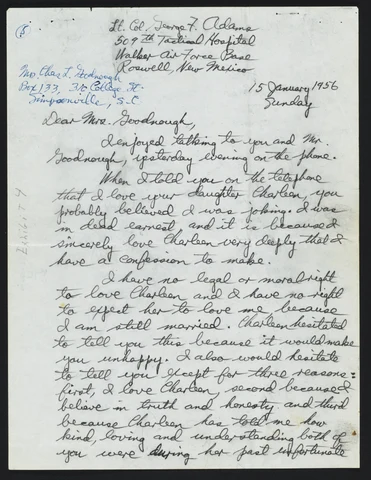 Lt. Col. George F. Adams
509th Tactical Hospital
Walker Air Force Base
Roswell, New Mexico
Mrs. Chas. L. Goodnough
Box 133, 312 College St.
Simpsonville, S.C.
15 January 1956
Sunday
Dear Mrs. Goodnough,
I enjoyed talking to you and Mr.
Goodnough, yesterday evening on the phone.
When I told you on the telephone
that I love your daughter Charleen, you
probably believed I was joking. I was
in dead earnest, and it is because I
sincerely love Charleen very deeply that I
have a confession to make.
I have no legal or moral right
to love Charleen and I have no right
to expect her to love me, because
I am still married. Charleen hesitated
to tell you this because it would make
you unhappy. I also would hesitate
to tell you except for three reasons:
first, I love Charleen, second because I
believe in truth and honesty and third
because Charleen has told me how
kind, loving and understanding both of
you were during her past unfortunate